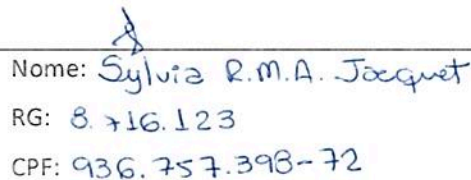 Nome: Sylvia R.M.A. Jacquet
RG: 8.716.123
CPF: 936.757.398-72